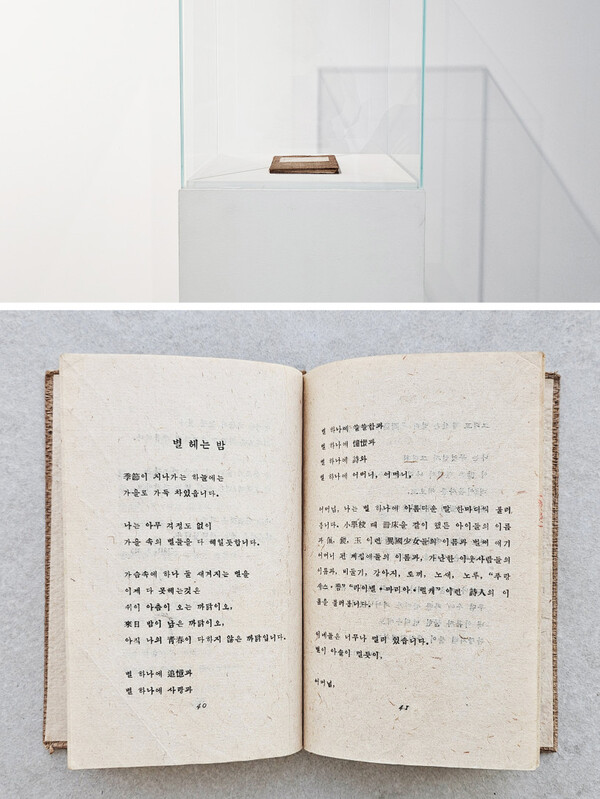 별 헤는 밤
季節이 지나가는 하늘에는
가을로 가득 차있습니다.
나는 아무 걱정도 없이
가을 속의 별들을 다 헤일듯합니다.
가슴속에 하나 둘 새겨지는 별을
이제 다 못헤는것은
쉬이 아츰이 오는 까닭이오,
來日 밤이 남은 까닭이오,
아직 나의 靑春이 다하지 않은 까닭입니다.
별 하나에 追憶과
별 하나에 사랑과
40
별 하나에 쓸쓸함과
별 하나에 憧憬과
별 하나에 詩와
별 하나에 어머니, 어머니,
어머님, 나는 별 하나에 아름다운 말 한마디씩 불러
봅니다. 小學校 때 册床을 같이 했든 아이들의 이름
과 佩, 鏡, 玉 이런 異國少女들의 이름과 벌써 애기
어머니 된 계집애들의 이름과, 가난한 이웃사람들의
이름과, 비둘기, 강아지, 토끼, 노새, 노루, “푸랑
시스・쨤” “라이넬・마리아・릴케” 이런 詩人의 이
름을 불러봅니다.
이네들은 너무나 멀리 있습니다.
별이 아슬이 멀듯이,
어머님,
41